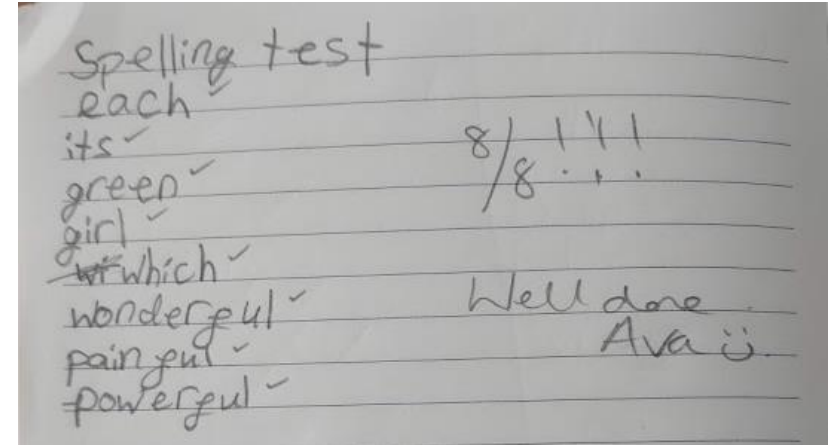 Spelling test
each ✓
its ✓
green ✓
girl ✓
which ✓
wonderful ✓
painful ✓
powerful ✓
8/8 !!!
Well done
Ava ü